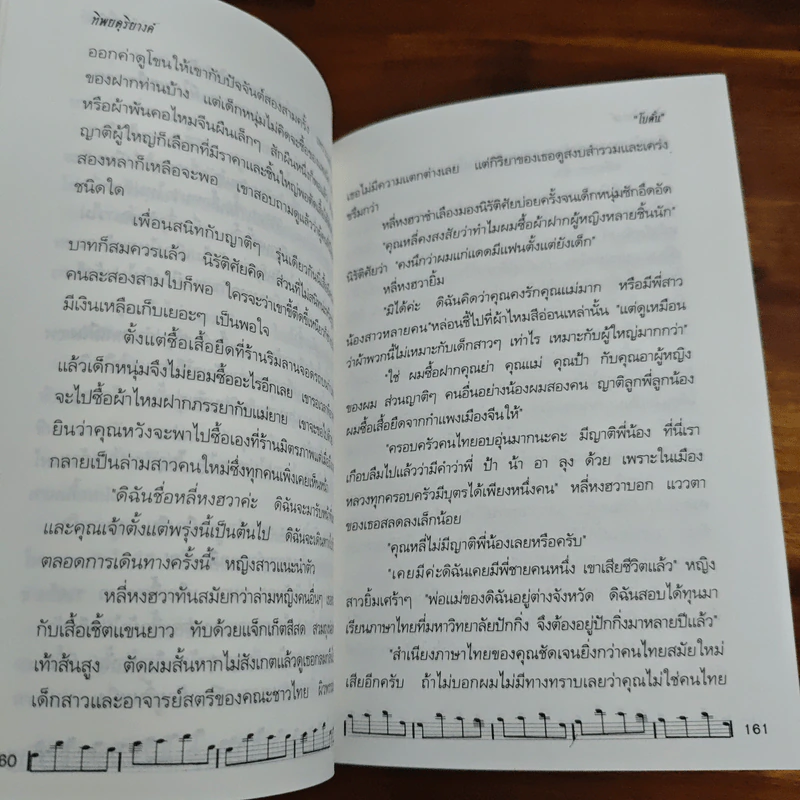 ทิพยดุริยางค์
ออกค่าดูโขนให้เขากับปัจจันต์สองสามครั้ง
ของฝากท่านบ้าง แต่เด็กหนุ่มไม่คิดจะซื้อของ
หรือผ้าพันคอไหมจีนผืนเล็กๆ สักผืนหนึ่ง
ญาติผู้ใหญ่ก็เลือกที่มีราคาและชิ้นใหญ่พอ
สองหลาก็เหลือจะพอ เขาสอบถามดูแล้วว่า
ชนิดใด
เพื่อนสนิทกับญาติๆ รุ่นเดียวกัน
บาทก็สมควรแล้ว นิรัติศัยคิด ส่วนที่ไม่สนิท
คนละสองสามใบก็พอ ใครจะว่าเขาขี้ตืดขี้เหนียว
มีเงินเหลือเก็บเยอะๆ เป็นพอใจ
ตั้งแต่ซื้อเสื้อยืดที่ร้านริมลานจอดรถ
แล้วเด็กหนุ่มจึงไม่ยอมซื้ออะไรอีกเลย
จะไปซื้อผ้าไหมฝากภรรยากับแม่ยาย เขาจะขอไป
ยินว่าคุณหวังจะพาไปซื้อเองที่ร้านมิตรภาพ
กลายเป็นล่ามสาวคนใหม่ซึ่งทุกคนเพิ่งเคยเห็น
"ดิฉันชื่อหลี่หงฮวาค่ะ ดิฉันจะมารับ
และคุณเจ้าตั้งแต่พรุ่งนี้เป็นต้นไป ดิฉันจะเดินทาง
ตลอดการเดินทางครั้งนี้" หญิงสาวแนะนำตัว
หลี่หงฮวาทันสมัยกว่าล่ามหญิงคนอื่นๆ
กับเสื้อเชิ้ตแขนยาว ทับด้วยแจ็กเก็ตสีสด สวม
เท้าส้นสูง ตัดผมสั้นหากไม่สังเกตแล้วดูเธอ
เด็กสาวและอาจารย์สตรีของคณะชาวไทย
60
"โบตั๋น"
เธอไม่มีความแตกต่างเลย แต่กิริยาของเธอดูสงบสำรวมและเคร่ง
ขรึมกว่า
หลี่หงฮวาชำเลืองมองนิรัติศัยบ่อยครั้งจนเด็กหนุ่มชักอึดอัด
"คุณหลี่คงสงสัยว่าทำไมผมซื้อผ้าฝากผู้หญิงหลายชิ้นนัก"
นิรัติศัยว่า "คงนึกว่าผมแก่แดดมีแฟนตั้งแต่ยังเด็ก"
หลี่หงฮวายิ้ม
"มิได้ค่ะ ดิฉันคิดว่าคุณคงรักคุณแม่มาก หรือมีพี่สาว
น้องสาวหลายคน"หล่อนชี้ไปที่ผ้าไหมสีอ่อนเหล่านั้น "แต่ดูเหมือน
ว่าผ้าพวกนี้ไม่เหมาะกับเด็กสาวๆ เท่าไร เหมาะกับผู้ใหญ่มากกว่า"
"ใช่ ผมซื้อฝากคุณย่า คุณแม่ คุณป้า กับคุณอาผู้หญิง
ของผม ส่วนญาติๆ คนอื่นอย่างน้องผมสองคน ญาติลูกพี่ลูกน้อง
ผมซื้อเสื้อยืดจากกำแพงเมืองจีนให้"
"ครอบครัวคนไทยอบอุ่นมากนะคะ มีญาติพี่น้อง ที่นี่เรา
เกือบลืมไปแล้วว่ามีคำว่าพี่ ป้า น้า อา ลุง ด้วย เพราะในเมือง
หลวงทุกครอบครัวมีบุตรได้เพียงหนึ่งคน" หลี่หงฮวาบอก แววตา
ของเธอสลดลงเล็กน้อย
"คุณหลี่ไม่มีญาติพี่น้องเลยหรือครับ"
"เคยมีค่ะดิฉันเคยมีพี่ชายคนหนึ่ง เขาเสียชีวิตแล้ว" หญิง
สาวยิ้มเศร้าๆ "พ่อแม่ของดิฉันอยู่ต่างจังหวัด ดิฉันสอบได้ทุนมา
เรียนภาษาไทยที่มหาวิทยาลัยปักกิ่ง จึงต้องอยู่ปักกิ่งมาหลายปีแล้ว"
"สำเนียงภาษาไทยของคุณชัดเจนยิ่งกว่าคนไทยสมัยใหม่
เสียอีกครับ ถ้าไม่บอกผมไม่มีทางทราบเลยว่าคุณไม่ใช่คนไทย
161